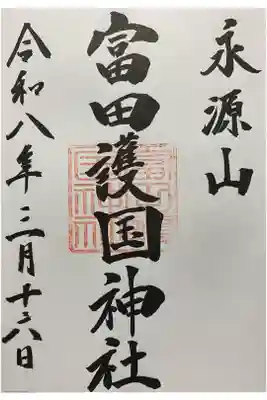 永源山
富田護国神社
令和八年三月十八日